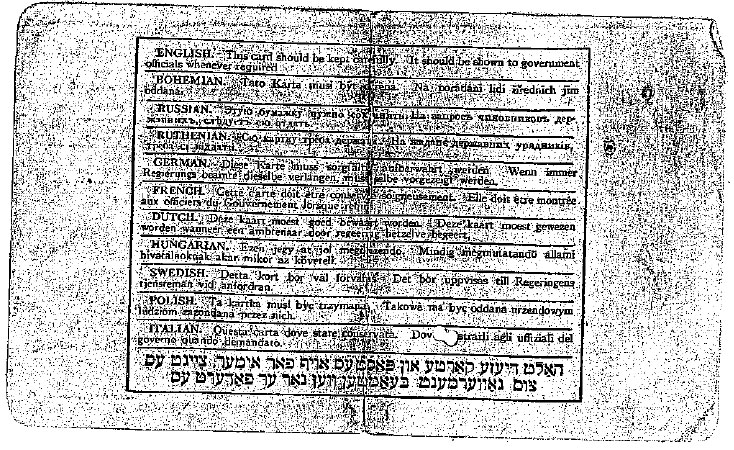 ENGLISH. This card should be kept carefully. It should be shown to government
officials whenever required
BOHEMIAN. Tato Karta musi byt Na porádání lidi úřednich jim
oddana.
RUSSIAN. Эту бумажку нужно На запросъ чиновниковъ дер-
RUTHENIAN. Сю картку треба державних урядників,
треба єї віддати.
GERMAN. Diese Karte muss sorgfältig aufbewahrt werden. Wenn immer
Regierungs beamte dieselbe verlangen, muss selbe vorgezeigt werden.
FRENCH. Cette carte doit être soigneusement. Elle doit être montrée
aux officiers du Gouvernement lorsque
DUTCH. Deze kaart moest goed bewaart worden. Deze kaart moest gewezen
worden wanneer een ambtenaar door regeering hetzelve begeert.
HUNGARIAN. Ezen jegy at jol Mindig megmutatando allami
hivatalnoknak akar mikor az követeli.
SWEDISH. Detta kort bör väl förvaras. Det bör uppvisas till Regeringens
tjensteman vid anfordran.
POLISH. Ta kartka musi być trzymana. Takowa ma być oddana urzendowym
ludziom zazondana przez nich.
ITALIAN. Questa carta dove state conservata. Dov strarli agli uffiziali del
governo quando demandato.
האלט דיעזע קארטע און פאסט עס אויף פאר אימער. צייגט עס
צום גאווערמענט בעאמטען ווען נאר ער פאדערט עס